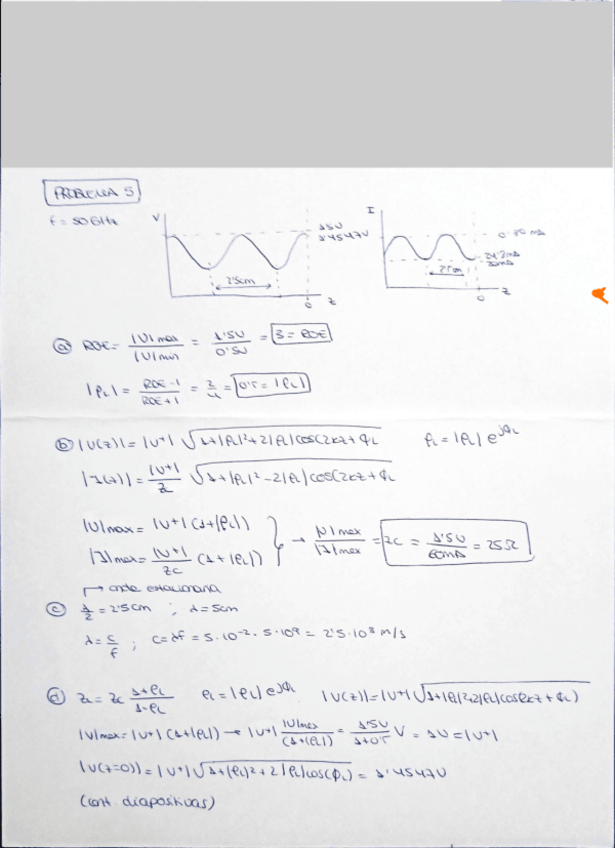 PROBLEMA 5
f = 50 GHz
V
1'5V
1'4547V
2'5cm
0
z
I
24'2mA
20mA
0
z
a) ROE = |V|max / |V|min = 1'5V / 0'5V = 3 = ROE
|ρL| = (ROE-1) / (ROE+1) = 2/4 = 0'5 = |ρL|
b) |V(z)| = |V+| √(1+|ρL|²+2|ρL|cos(2kz+ϕL     ρL = |ρL| e^jϕL
|I(z)| = |V+|/Zc √(1+|ρL|²-2|ρL|cos(2kz+ϕL
|V|max = |V+| (1+|ρL|)
|I|max = |V+|/Zc (1+|ρL|) } → |V|max / |I|max = Zc = 1'5V / 60mA = 25Ω
↱ onda estacionaria
c) λ/2 = 2'5cm ; λ = 5cm
λ = c/f ; c = λf = 5·10⁻²·5·10⁹ = 2'5·10⁸ m/s
d) ZL = Zc (1+ρL)/(1-ρL)     ρL = |ρL| e^jϕL     |V(z)| = |V+| √(1+|ρL|²+2|ρL|cos(2kz+ϕL)
|V|max = |V+| (1+|ρL|) → |V+| |V|max / (1+|ρL|) = 1'5V / 1+0'5 V = 1V = |V+|
|V(z=0)| = |V+| √(1+|ρL|²+2|ρL|cos(ϕL) = 1'4547V
(cont. diapositivas)